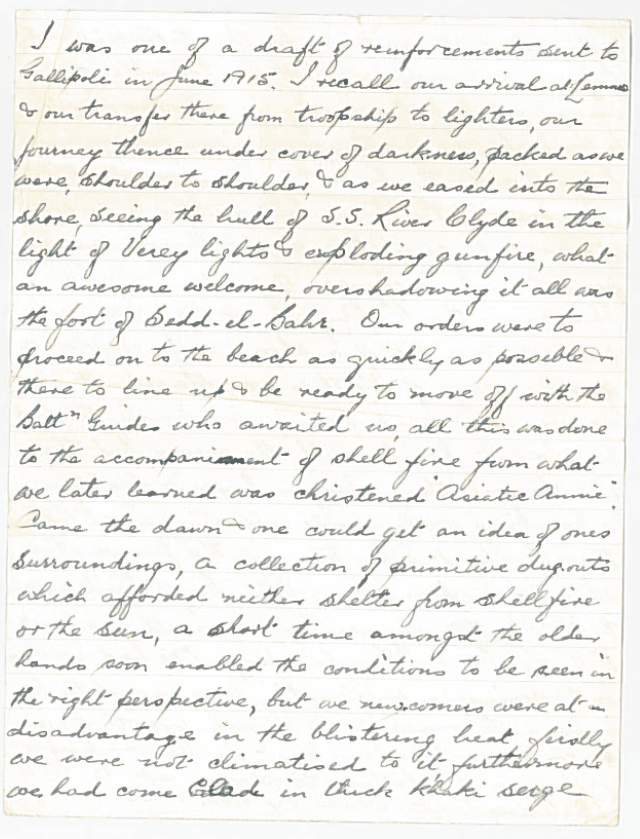 I was one of a draft of reinforcements sent to
Gallipoli in June 1915. I recall our arrival at Lemnos
& our transfer there from troopship to lighters, our
journey thence under cover of darkness, packed as we
were, shoulder to shoulder, & as we eased into the
shore, seeing the hull of S.S. River Clyde in the
light of Verey lights & exploding gunfire, what
an awesome welcome, overshadowing it all was
the fort of Sedd-el-Bahr. Our orders were to
proceed on to the beach as quickly as possible &
there to line up & be ready to move off with the
Battn Guides who awaited us, all this was done
to the accompaniment of shell fire from what
we later learned was christened "Asiatic Annie".
Came the dawn & one could get an idea of ones
surroundings, a collection of primitive dugouts
which afforded neither shelter from shellfire
or the sun, a short time amongst the older
hands soon enabled the conditions to be seen in
the right perspective, but we newcomers were at a
disadvantage in the blistering heat, firstly
we were not climatised to it, furthermore
we had come clad in thick khaki serge